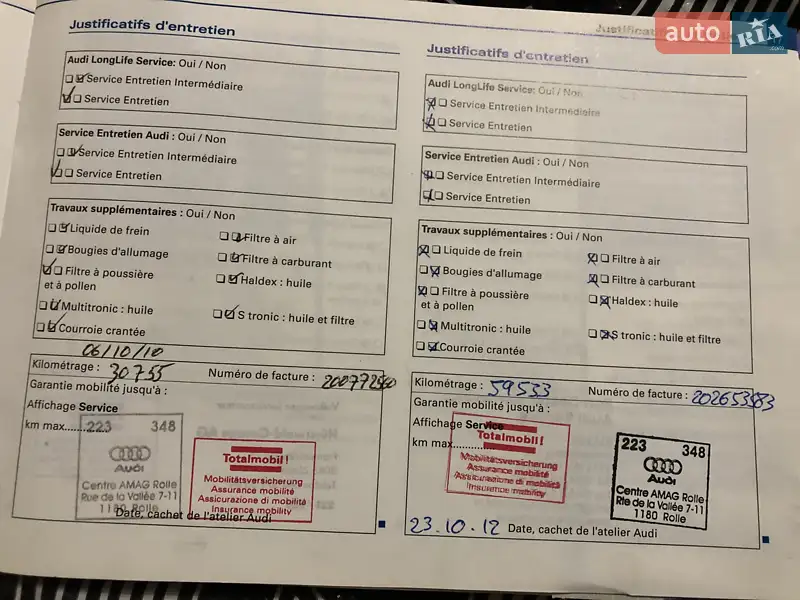 Justificatifs d'entretien
Audi LongLife Service: Oui / Non
Service Entretien Intermédiaire
Service Entretien
Service Entretien Audi : Oui / Non
Service Entretien Intermédiaire
Service Entretien
Travaux supplémentaires : Oui / Non
Liquide de frein
Filtre à air
Bougies d'allumage
Filtre à carburant
Filtre à poussière
et à pollen
Haldex : huile
Multitronic : huile
S tronic : huile et filtre
Courroie crantée
06/10/10
Kilométrage : 30755
Numéro de facture :
Garantie mobilité jusqu'à :
Affichage Service
km max.......
223 348
Audi
Centre AMAG Rolle
Rue de la Vallée 7-11
1180 Rolle
Totalmobil!
Mobilitätsversicherung
Assurance mobilité
Assicurazione di mobilità
Insurance mobility
Date, cachet de l'atelier Audi
Justificatifs d'entretien
Audi LongLife Service: Oui / Non
Service Entretien Intermédiaire
Service Entretien
Service Entretien Audi : Oui / Non
Service Entretien Intermédiaire
Service Entretien
Travaux supplémentaires : Oui / Non
Liquide de frein
Filtre à air
Bougies d'allumage
Filtre à carburant
Filtre à poussière
et à pollen
Haldex : huile
Multitronic : huile
S tronic : huile et filtre
Courroie crantée
Kilométrage : 59533
Numéro de facture :
Garantie mobilité jusqu'à :
Affichage Service
km max.........
Totalmobil!
Mobilitätsversicherung
Assurance mobilité
Assicurazione di mobilità
Insurance mobility
223 348
Audi
Centre AMAG Rolle
Rte de la Vallée 7-11
1180 Rolle
23.10.12 Date, cachet de l'atelier Audi
auto RIA
.com